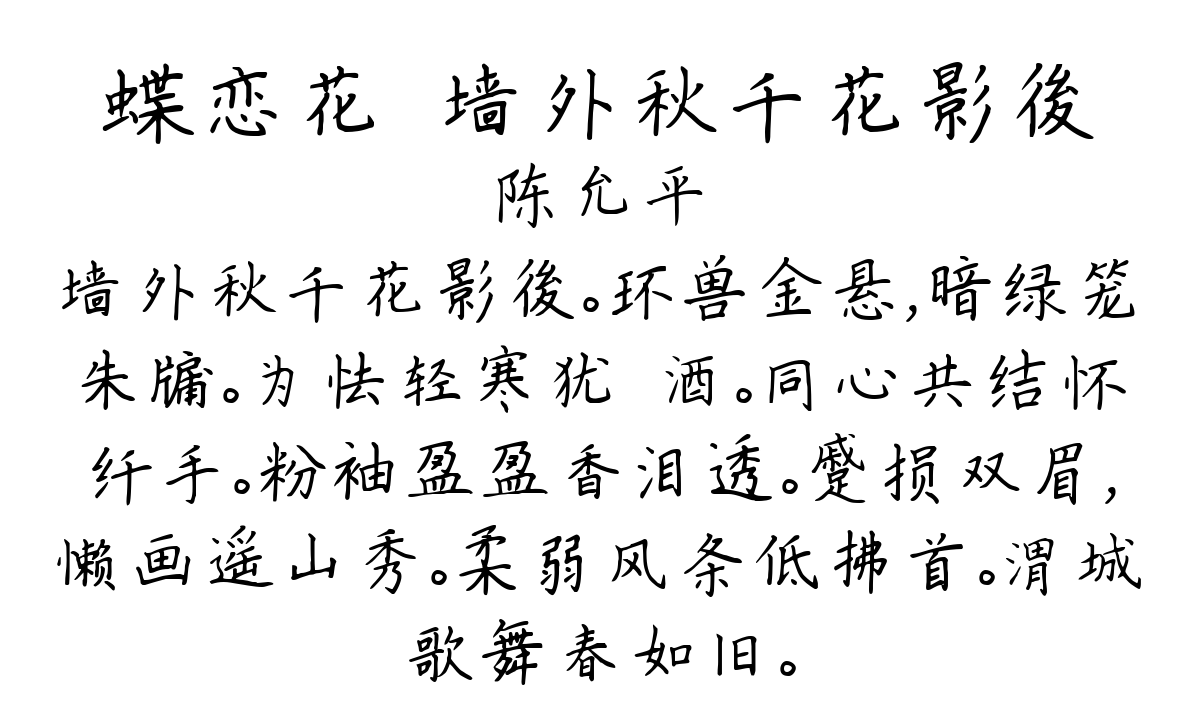 蝶恋花 墙外秋千花影後
陈允平
墙外秋千花影後。环兽金悬,暗绿笼
朱牖。为怯轻寒犹 酒。同心共结怀
纤手。粉袖盈盈香泪透。蹙损双眉,
懒画遥山秀。柔弱风条低拂首。渭城
歌舞春如旧。